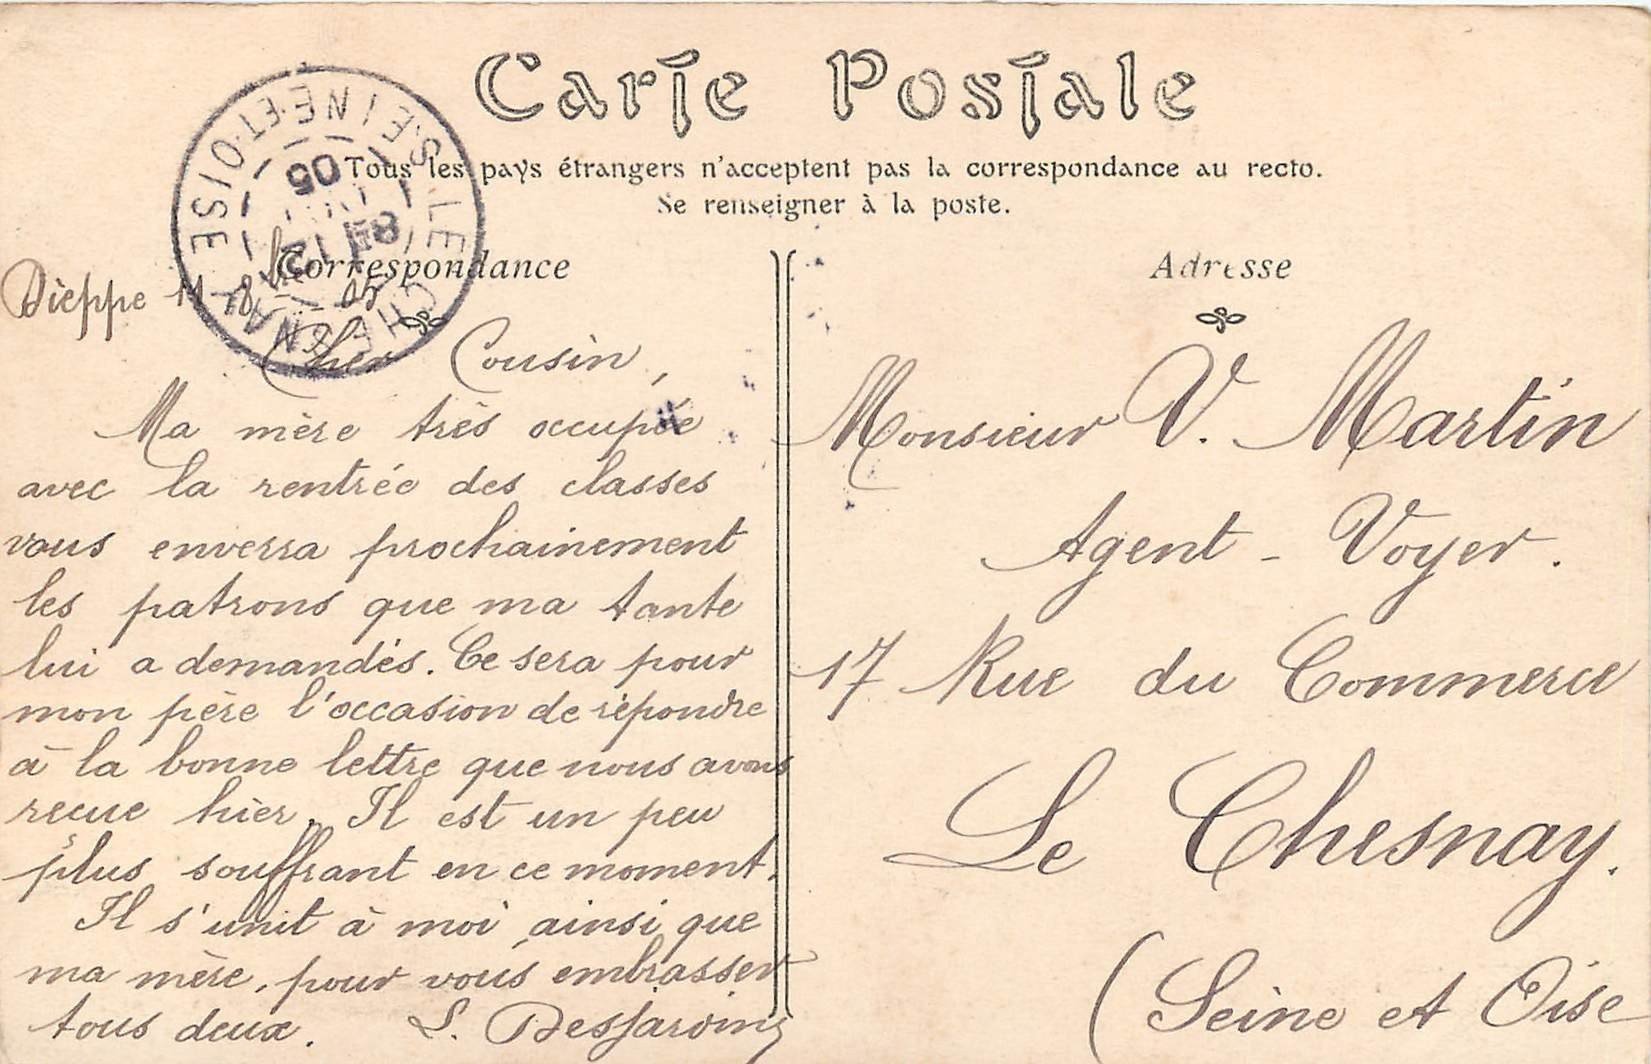 Carte Postale
Tous les pays étrangers n'acceptent pas la correspondance au recto.
Se renseigner à la poste.
LE CHESNAY
SEINE-ET-OISE
05
Correspondance
Dieppe 11 05
Cher Cousin,
Ma mère très occupée
avec la rentrée des classes
vous enverra prochainement
les patrons que ma tante
lui a demandés. Ce sera pour
mon père l'occasion de répondre
à la bonne lettre que nous avons
reçue hier. Il est un peu
plus souffrant en ce moment.
Il s'unit à moi ainsi que
ma mère, pour vous embrasser
tous deux. L. Desjardins
Adresse
Monsieur V. Martin
Agent-Voyer.
17 Rue du Commerce
Le Chesnay.
(Seine et Oise